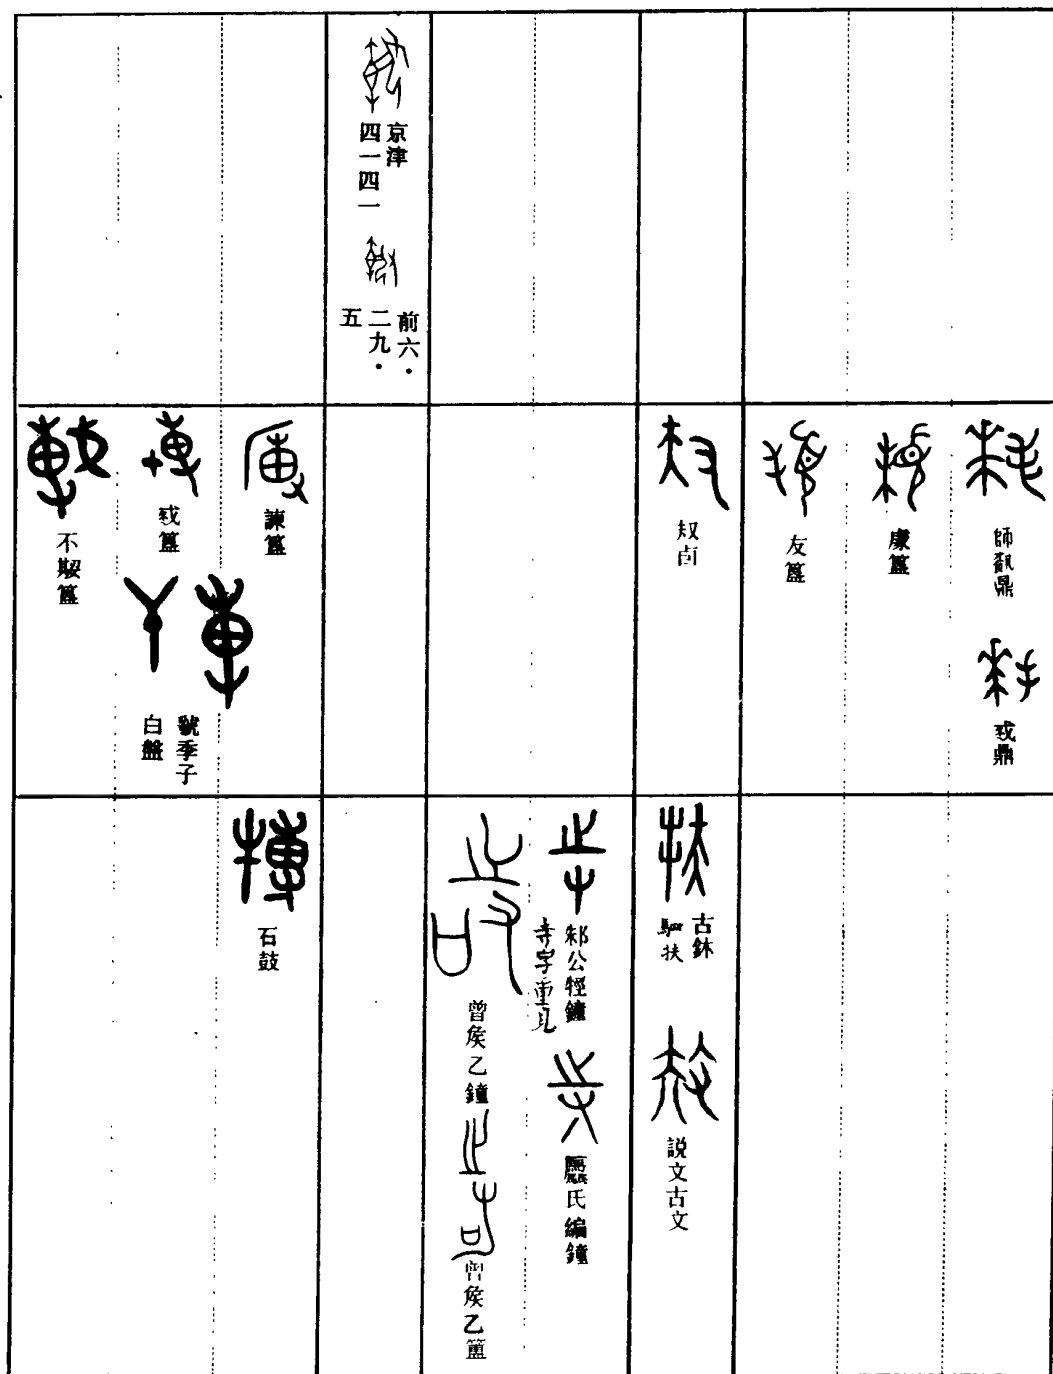 京津
四一四一
前六·
二九·
五
師𩛥鼎
㦰鼎
康簋
友簋
叔卣
諫簋
㦰簋
虢季子
白盤
不𡢁簋
古鉥
駟扶
説文古文
邾公牼鐘
寺字重見
𠫑氏編鐘
曾侯乙鐘
曾侯乙簠
石鼓